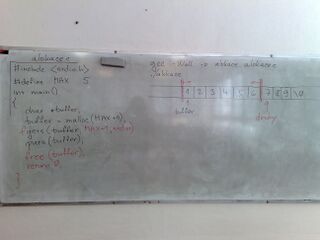 alokace.c
#include <stdlib.h>
#define MAX 5
int main()
{
char *buffer;
buffer = malloc (MAX+1);
fgets (buffer, MAX+1, stdin);
puts (buffer);
free (buffer);
return 0;
}
gcc -Wall -o alokace alokace.c
./alokace
1 2 3 4 5 6 7 8 9 \0
buffer